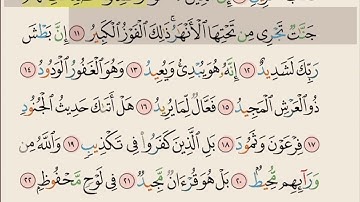 جَنَّٰتٌ تَجْرِي مِن تَحْتِهَا ٱلْأَنْهَٰرُ ۚ ذَٰلِكَ ٱلْفَوْزُ ٱلْكَبِيرُ ١١ إِنَّ بَطْشَ
رَبِّكَ لَشَدِيدٌ ١٢ إِنَّهُۥ هُوَ يُبْدِئُ وَيُعِيدُ ١٣ وَهُوَ ٱلْغَفُورُ ٱلْوَدُودُ ١٤
ذُو ٱلْعَرْشِ ٱلْمَجِيدُ ١٥ فَعَّالٌ لِّمَا يُرِيدُ ١٦ هَلْ أَتَىٰكَ حَدِيثُ ٱلْجُنُودِ
١٧ فِرْعَوْنَ وَثَمُودَ ١٨ بَلِ ٱلَّذِينَ كَفَرُوا۟ فِي تَكْذِيبٍ ١٩ وَٱللَّهُ مِن
وَرَآئِهِم مُّحِيطٌۢ ٢٠ بَلْ هُوَ قُرْءَانٌ مَّجِيدٌ ٢١ فِي لَوْحٍ مَّحْفُوظٍۭ ٢٢